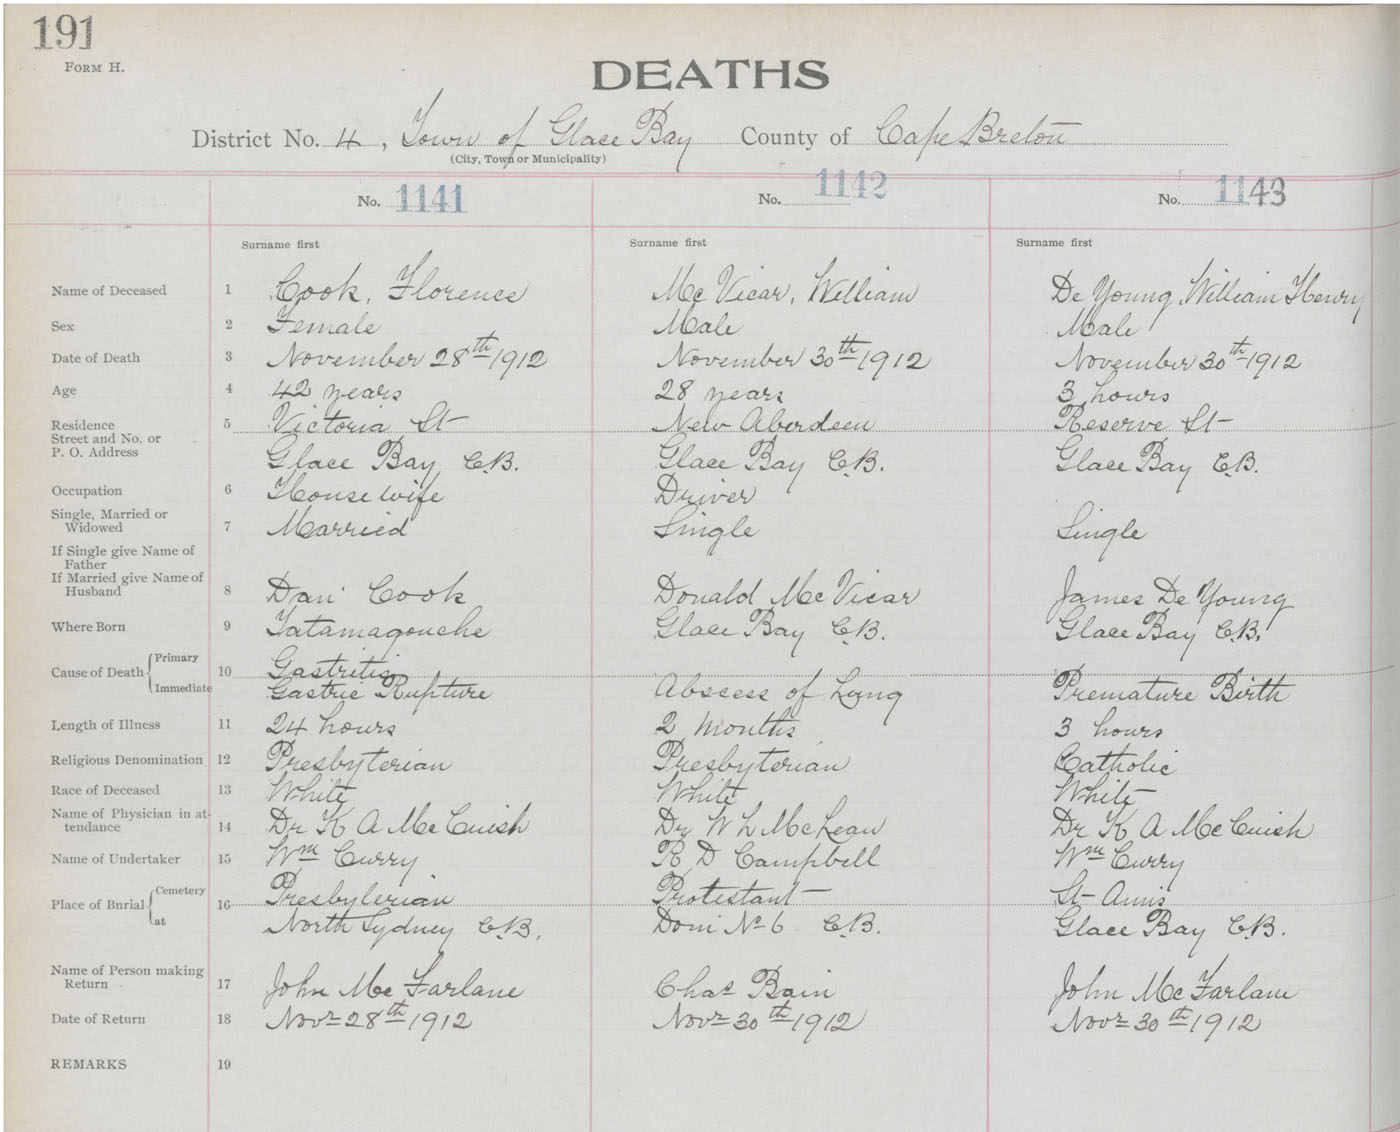 191
FORM H.
DEATHS
District No. 4, Town of Glace Bay County of Cape Breton
(City, Town or Municipality)
No. 1141 No. 1142 No. 1143
Surname first Surname first Surname first
Name of Deceased 1 Cook, Florence Mc Vicar, William De Young, William Henry
Sex 2 Female Male Male
Date of Death 3 November 28th 1912 November 30th 1912 November 30th 1912
Age 4 42 years 28 years 3 hours
Residence 5 Victoria St New Aberdeen Reserve St
Street and No. or
P. O. Address Glace Bay, C.B. Glace Bay C.B. Glace Bay C.B.
Occupation 6 Housewife Driver
Single, Married or
Widowed 7 Married Single Single
If Single give Name of
Father
If Married give Name of
Husband 8 Dan Cook Donald Mc Vicar James De Young
Where Born 9 Tatamagouche Glace Bay C.B. Glace Bay C.B.
Cause of Death Primary 10 Gastritis
Immediate Gastric Rupture Abscess of Lung Premature Birth
Length of Illness 11 24 hours 2 months 3 hours
Religious Denomination 12 Presbyterian Presbyterian Catholic
Race of Deceased 13 White White White
Name of Physician in at-
tendance 14 Dr K A Mc Cuish Dr W L McLean Dr K A Mc Cuish
Name of Undertaker 15 Wm Curry R D Campbell Wm Curry
Place of Burial Cemetery 16 Presbyterian Protestant St Anns
at North Sydney C.B. Dom No 6 C.B. Glace Bay C.B.
Name of Person making
Return 17 John Mc Farlane Chas Bain John Mc Farlane
Date of Return 18 Novr 28th 1912 Novr 30th 1912 Novr 30th 1912
REMARKS 19